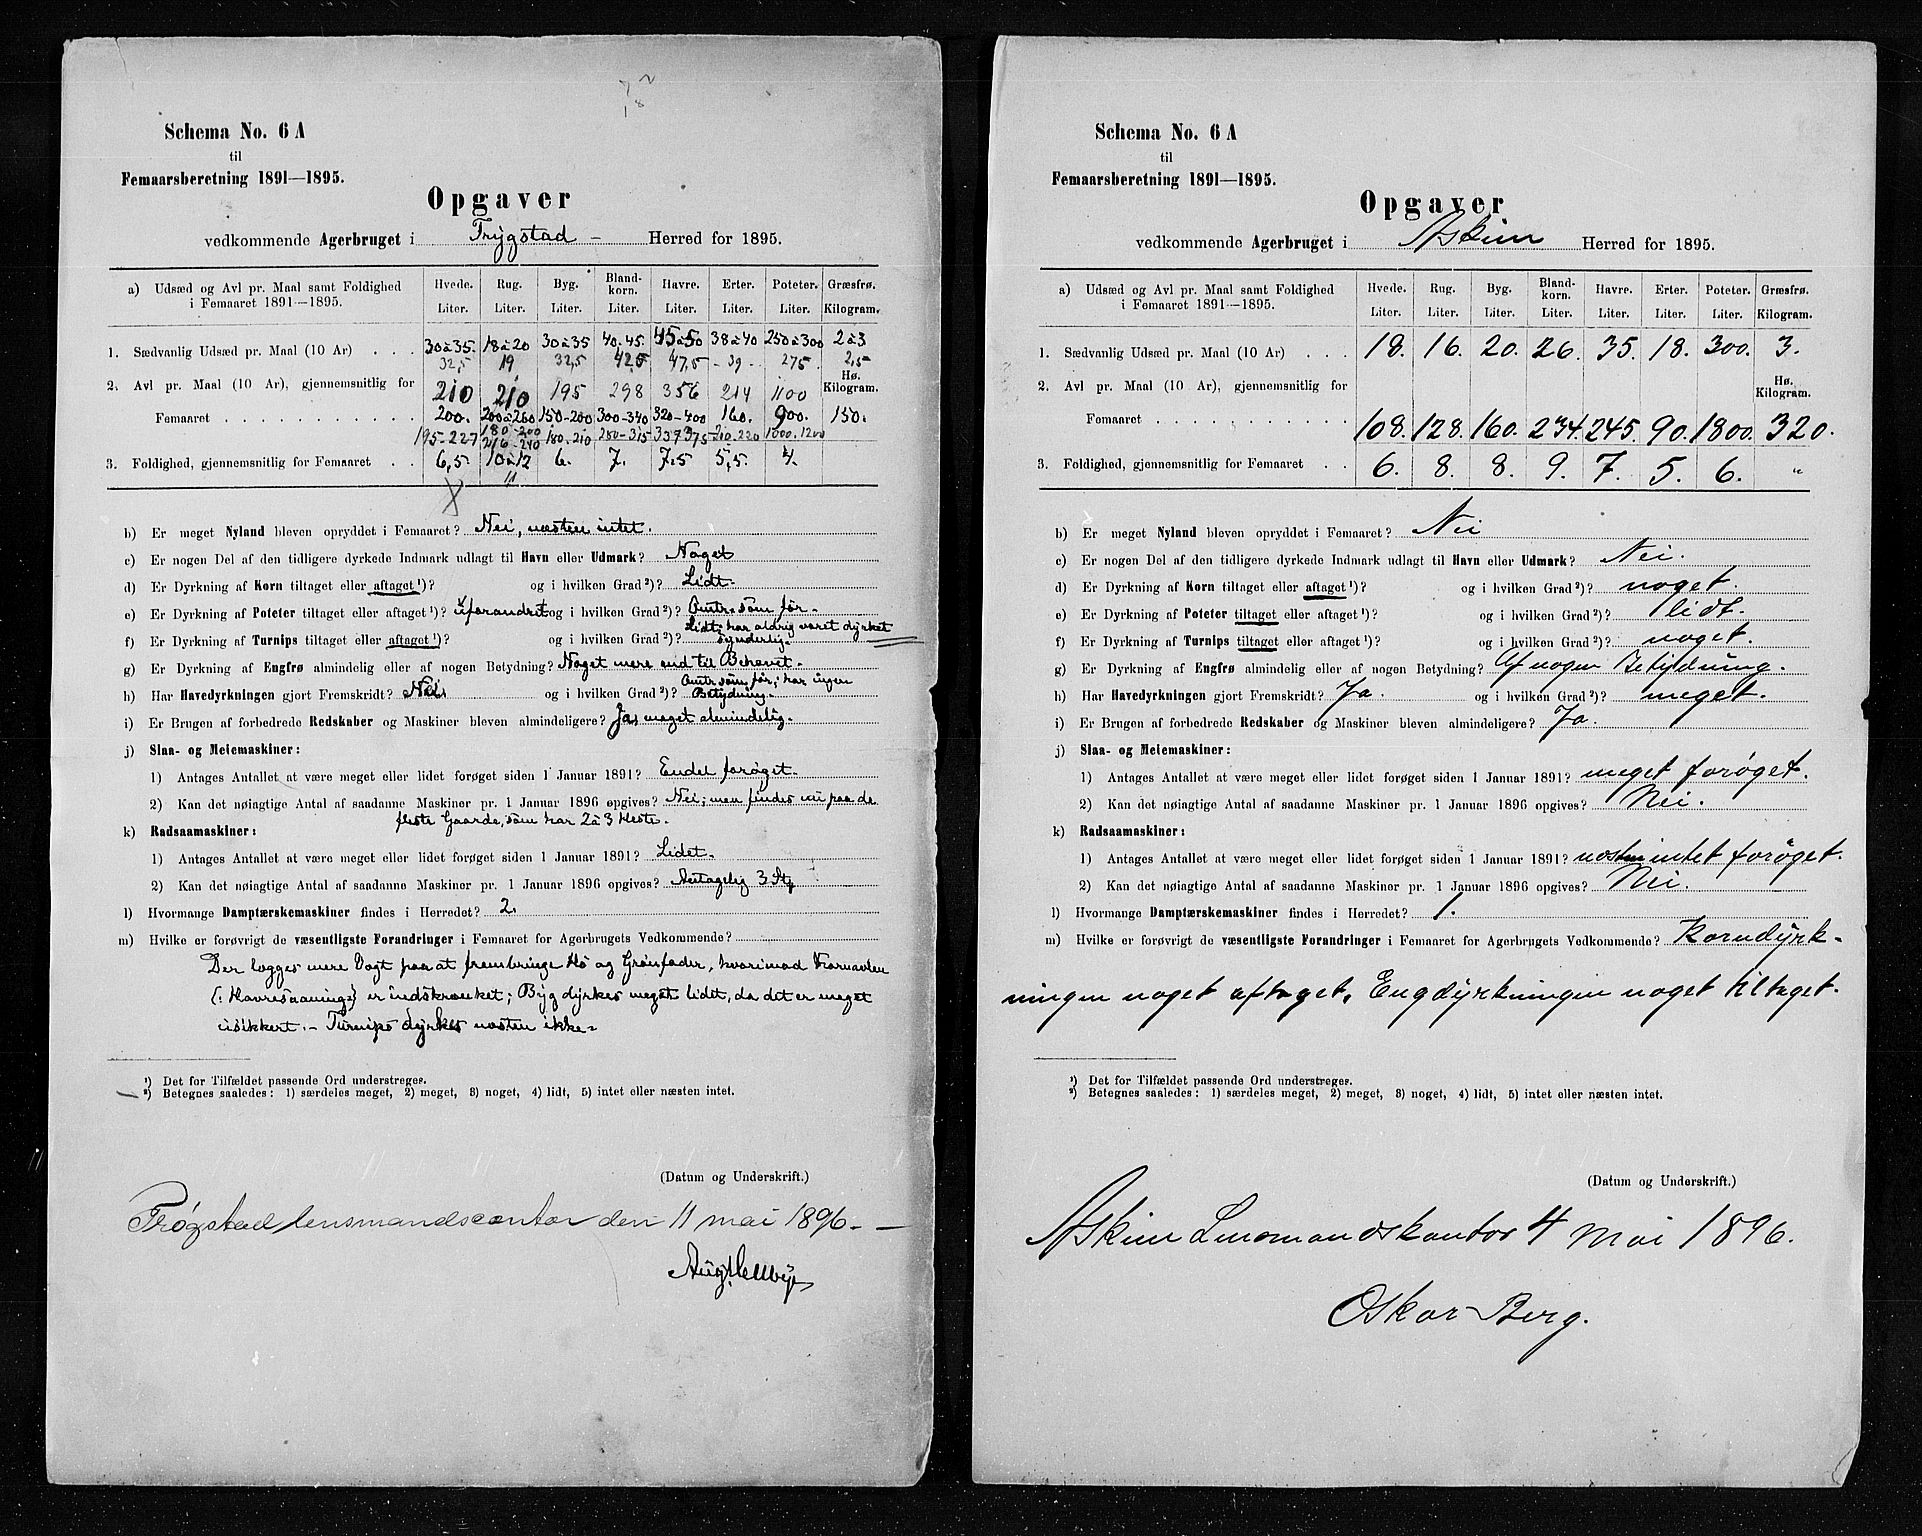 Schema No. 6 A
til
Femaarsberetning 1891—1895.
Opgaver
vedkommende Agerbruget i Trygstad - Herred for 1895.
a) Udsæd og Avl pr. Maal samt Foldighed i Femaaret 1891—1895.
Hvede. Rug. Byg. Bland-korn. Havre. Erter. Poteter. Græsfrø.
Liter. Liter. Liter. Liter. Liter. Liter. Liter. Kilogram.
1. Sædvanlig Udsæd pr. Maal (10 Ar) . . . 30 à 35. 18 à 20 30 à 35 40-45. 45 à 50 38 à 40 250 à 300 2 à 3
32,5 19 32,5 42,5 47,5 - 39 - 275 2,5
Hø.
2. Avl pr. Maal (10 Ar), gjennemsnitlig for 210 210 195 298 356 214 1100 Kilogram.
Femaaret . . . . . . . . . . 200. 200 à 260 150-200 300-340 320-400 160. 900. 150.
195-227 180-200 180-210 280-315 337 375 210-220 1000-1200
216-240
3. Foldighed, gjennemsnitlig for Femaaret . . 6,5. 10 à 12 6. 7. 7.5 5,5. 4.
11
b) Er meget Nyland bleven opryddet i Femaaret? Nei, næsten intet.
c) Er nogen Del af den tidligere dyrkede Indmark udlagt til Havn eller Udmark? Noget
d) Er Dyrkning af Korn tiltaget eller aftaget ¹)? og i hvilken Grad ²)? Lidt.
e) Er Dyrkning af Poteter tiltaget eller aftaget ¹)? Uforandret og i hvilken Grad ²)? Omtr. som før.
f) Er Dyrkning af Turnips tiltaget eller aftaget ¹)? og i hvilken Grad ²)? Lidt; har aldrig været dyrket synderlig.
g) Er Dyrkning af Engfrø almindelig eller af nogen Betydning? Noget mere end til Behovet.
h) Har Havedyrkningen gjort Fremskridt? Nei. og i hvilken Grad ²)? Omtr. som før; har ingen Betydning.
i) Er Brugen af forbedrede Redskaber og Maskiner bleven almindeligere? Ja, meget almindelig.
j) Slaa- og Meiemaskiner:
1) Antages Antallet at være meget eller lidet forøget siden 1 Januar 1891? Endel forøget.
2) Kan det nøiagtige Antal af saadanne Maskiner pr. 1 Januar 1896 opgives? Nei; men findes nu paa de
fleste Gaarde, som har 2 à 3 Heste.
k) Radsaamaskiner:
1) Antages Antallet at være meget eller lidet forøget siden 1 Januar 1891? Lidet.
2) Kan det nøiagtige Antal af saadanne Maskiner pr. 1 Januar 1896 opgives? Antagelig 3 Stk
l) Hvormange Damptærskemaskiner findes i Herredet? 2.
m) Hvilke er forøvrigt de væsentligste Forandringer i Femaaret for Agerbrugets Vedkommende?
Der lægges mere Vægt paa at frembringe Hø og Grønfoder, hvorimod Kornavlen
(: Havresaaning :) er indskrænket; Byg dyrkes meget lidet, da det er meget
usikkert. - Turnips dyrkes næsten ikke.
¹) Det for Tilfældet passende Ord understreges.
²) Betegnes saaledes: 1) særdeles meget, 2) meget, 3) noget, 4) lidt, 5) intet eller næsten intet.
(Datum og Underskrift.)
Trøgstad lensmandscontor den 11 mai 1896. -
Schema No. 6 A
til
Femaarsberetning 1891—1895.
Opgaver
vedkommende Agerbruget i Askim Herred for 1895.
a) Udsæd og Avl pr. Maal samt Foldighed i Femaaret 1891—1895.
Hvede. Rug. Byg. Bland-korn. Havre. Erter. Poteter. Græsfrø.
Liter. Liter. Liter. Liter. Liter. Liter. Liter. Kilogram.
1. Sædvanlig Udsæd pr. Maal (10 Ar) . . . 18. 16. 20. 26. 35. 18. 300. 3.
2. Avl pr. Maal (10 Ar), gjennemsnitlig for Hø. Kilogram.
Femaaret . . . . . . . . . . 108. 128. 160. 234. 245. 90. 1800. 320.
3. Foldighed, gjennemsnitlig for Femaaret . . 6. 8. 8. 9. 7. 5. 6. "
b) Er meget Nyland bleven opryddet i Femaaret? Nei
c) Er nogen Del af den tidligere dyrkede Indmark udlagt til Havn eller Udmark? Nei.
d) Er Dyrkning af Korn tiltaget eller aftaget ¹)? og i hvilken Grad ²)? noget.
e) Er Dyrkning af Poteter tiltaget eller aftaget ¹)? og i hvilken Grad ²)? lidt.
f) Er Dyrkning af Turnips tiltaget eller aftaget ¹)? og i hvilken Grad ²)? noget.
g) Er Dyrkning af Engfrø almindelig eller af nogen Betydning? Af nogen Betydning.
h) Har Havedyrkningen gjort Fremskridt? Ja. og i hvilken Grad ²)? meget.
i) Er Brugen af forbedrede Redskaber og Maskiner bleven almindeligere? Ja.
j) Slaa- og Meiemaskiner:
1) Antages Antallet at være meget eller lidet forøget siden 1 Januar 1891? meget forøget.
2) Kan det nøiagtige Antal af saadanne Maskiner pr. 1 Januar 1896 opgives? Nei.
k) Radsaamaskiner:
1) Antages Antallet at være meget eller lidet forøget siden 1 Januar 1891? næsten intet forøget.
2) Kan det nøiagtige Antal af saadanne Maskiner pr. 1 Januar 1896 opgives? Nei.
l) Hvormange Damptærskemaskiner findes i Herredet? 1.
m) Hvilke er forøvrigt de væsentligste Forandringer i Femaaret for Agerbrugets Vedkommende? Korndyrk-
ningen noget aftaget, Engdyrkningen noget tiltaget.
¹) Det for Tilfældet passende Ord understreges.
²) Betegnes saaledes: 1) særdeles meget, 2) meget, 3) noget, 4) lidt, 5) intet eller næsten intet.
(Datum og Underskrift.)
Askim Lensmandskontor 4 Mai 1896.
Oskar Berg.